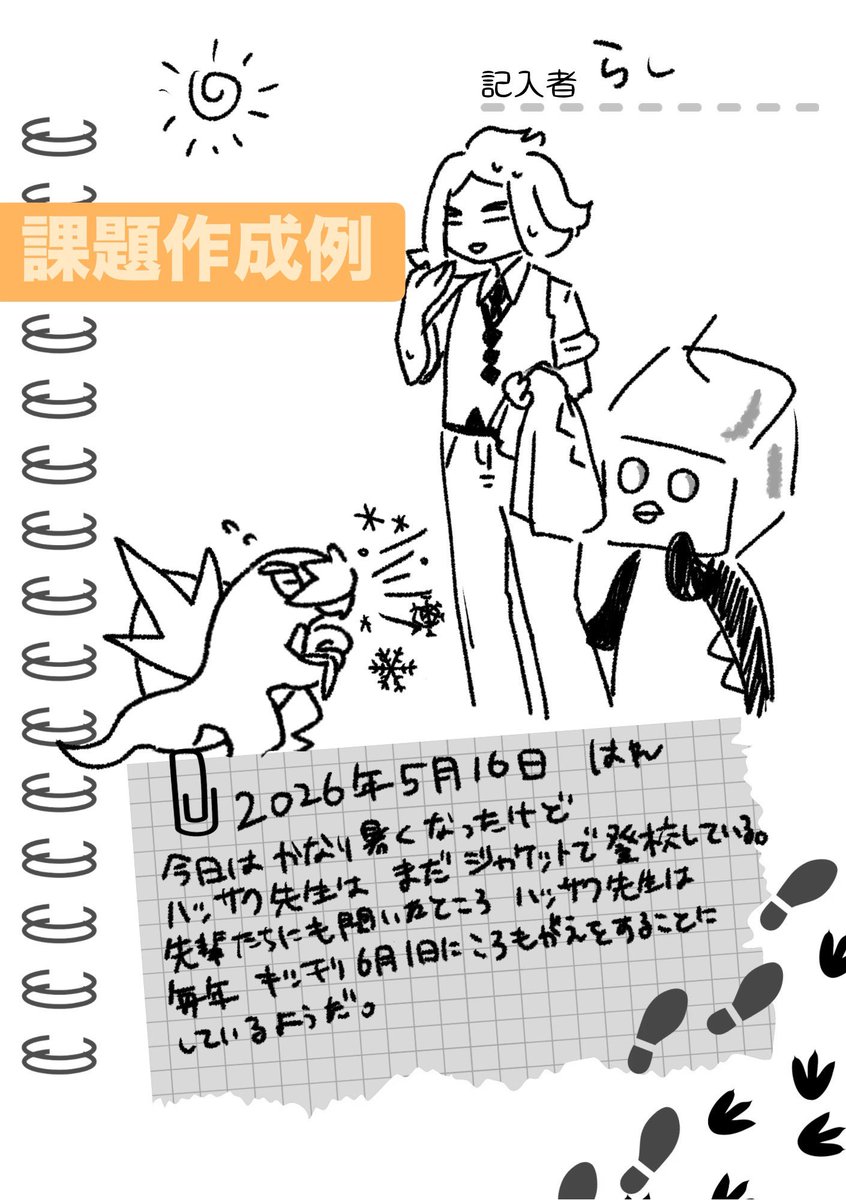 記入者 らし
課題作成例
2026年5月16日 はれ
今日はかなり暑くなったけど
ハッサク先生は まだジャケットで登校している。
先輩たちにも聞いたところ ハッサク先生は
毎年 キッチリ6月1日にころもがえをすることに
しているようだ。